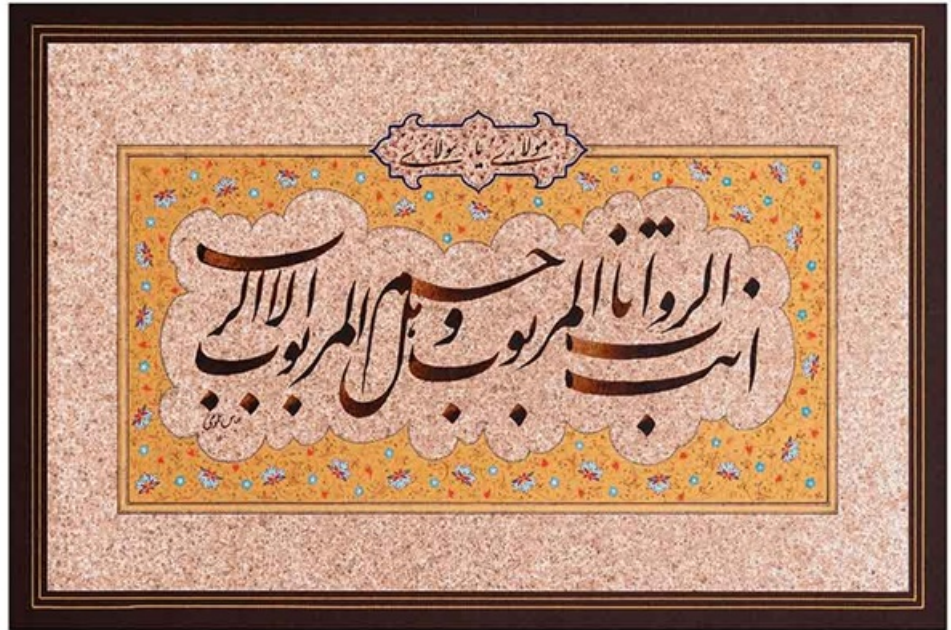 مولای یا مولای
انت الرب و انا المربوب و هل یرحم المربوب الا الرب